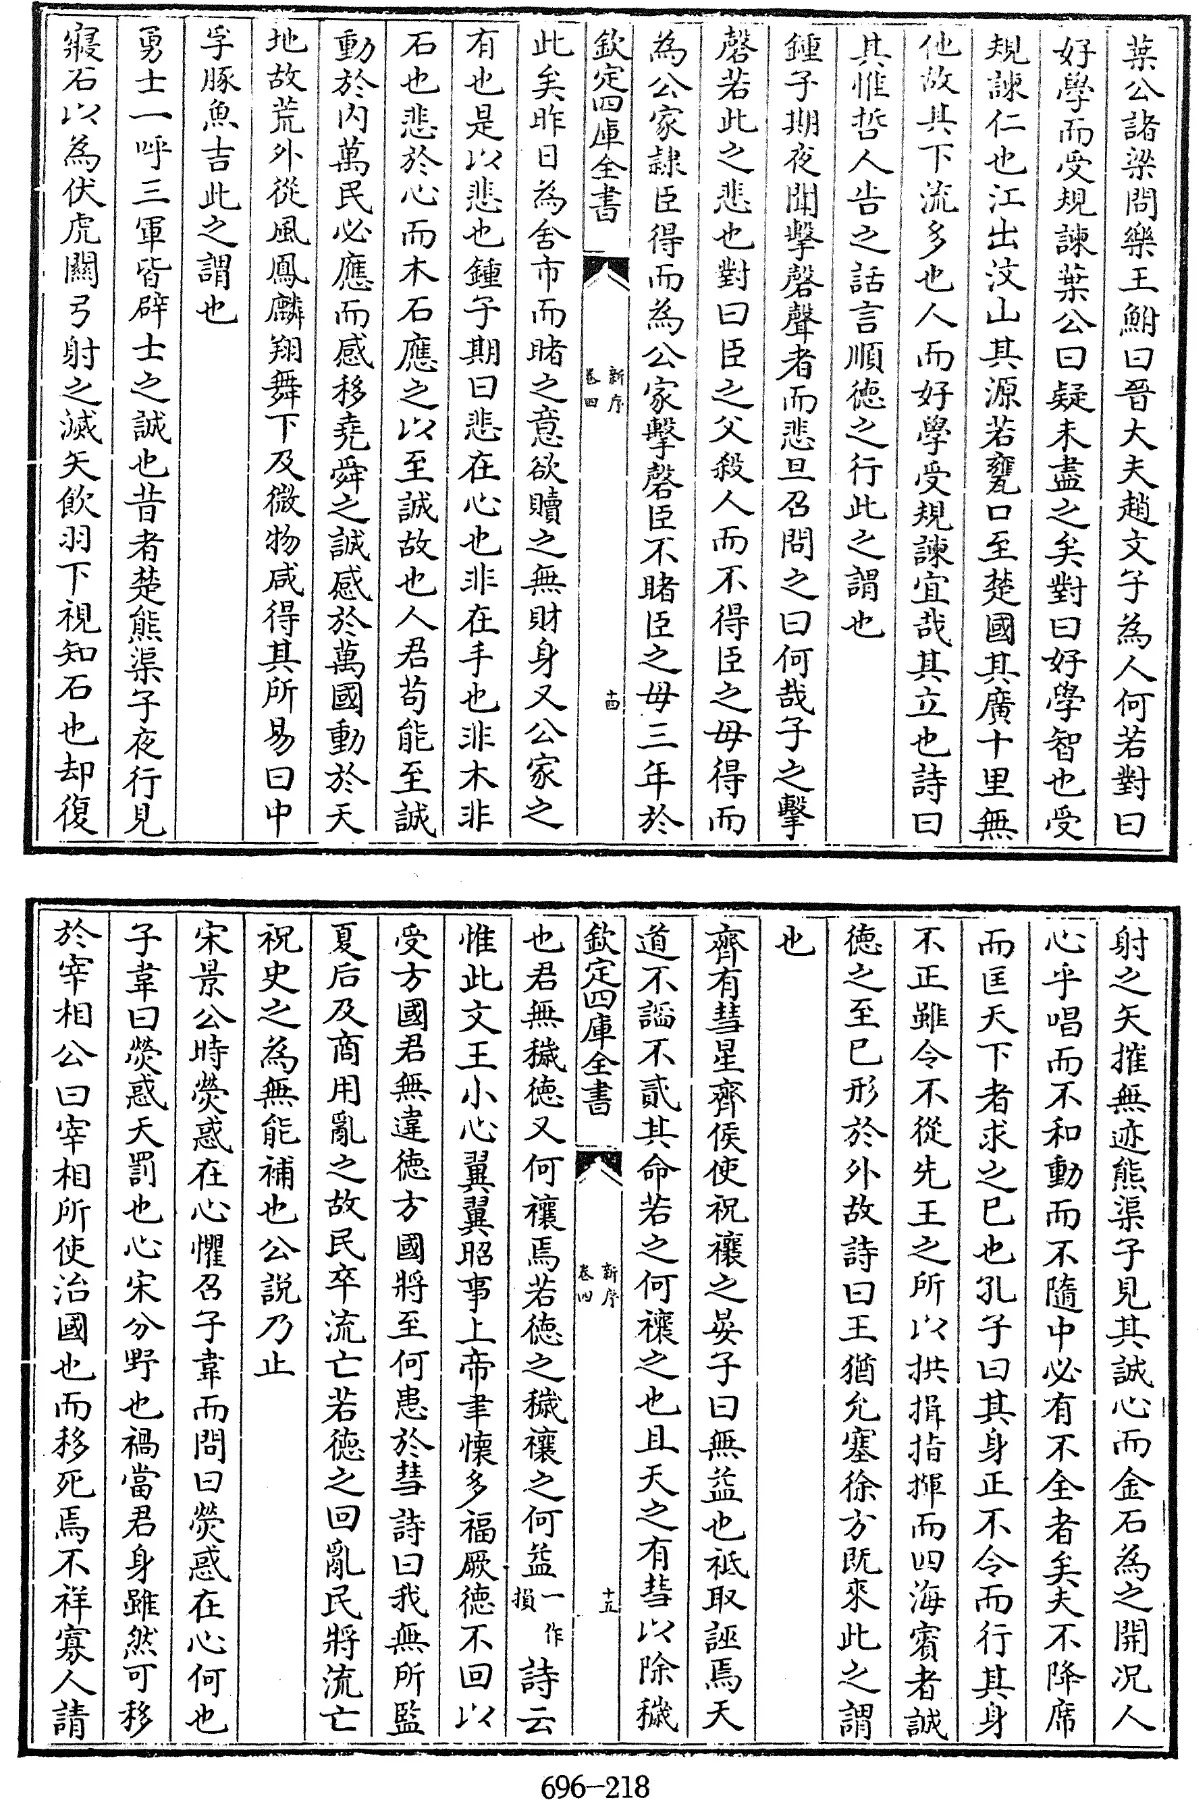 葉公諸梁問樂王鮒曰晉大夫趙文子為人何若對曰
好學而受規諫葉公曰疑未盡之矣對曰好學智也受
規諫仁也江出汶山其源若甕口至楚國其廣十里無
他故其下流多也人而好學受規諫宜哉其立也詩曰
其惟哲人告之話言順徳之行此之謂也
鍾子期夜聞擊磬聲者而悲旦召問之曰何哉子之擊
磬若此之悲也對曰臣之父殺人而不得臣之母得而
為公家隷臣得而為公家擊磬臣不睹臣之母三年於
欽定四庫全書
新序
卷四
十四
此矣昨日為舍市而睹之意欲贖之無財身又公家之
有也是以悲也鍾子期曰悲在心也非在手也非木非
石也悲於心而木石應之以至誠故也人君茍能至誠
動於内萬民必應而感移堯舜之誠感於萬國動於天
地故荒外從風鳳麟翔舞下及微物咸得其所易曰中
孚豚魚吉此之謂也
勇士一呼三軍皆辟士之誠也昔者楚熊渠子夜行見
寢石以為伏虎關弓射之滅矢飲羽下視知石也却復
射之矢摧無迹熊渠子見其誠心而金石為之開况人
心乎唱而不和動而不隨中必有不全者矣夫不降席
而匡天下者求之已也孔子曰其身正不令而行其身
不正雖令不從先王之所以拱揖指揮而四海賓者誠
徳之至已形於外故詩曰王猶允塞徐方既來此之謂
也
齊有彗星齊侯使祝禳之晏子曰無益也祗取誣焉天
道不謟不貳其命若之何禳之也且天之有彗以除穢
欽定四庫全書
新序
卷四
十五
也君無穢徳又何禳焉若徳之穢禳之何益一作損詩云
惟此文王小心翼翼昭事上帝聿懐多福厥徳不回以
受方國君無違徳方國將至何患於彗詩曰我無所監
夏后及商用亂之故民卒流亡若徳之回亂民將流亡
祝史之為無能補也公説乃止
宋景公時熒惑在心懼召子韋而問曰熒惑在心何也
子韋曰熒惑天罰也心宋分野也禍當君身雖然可移
於宰相公曰宰相所使治國也而移死焉不祥寡人請
696-218